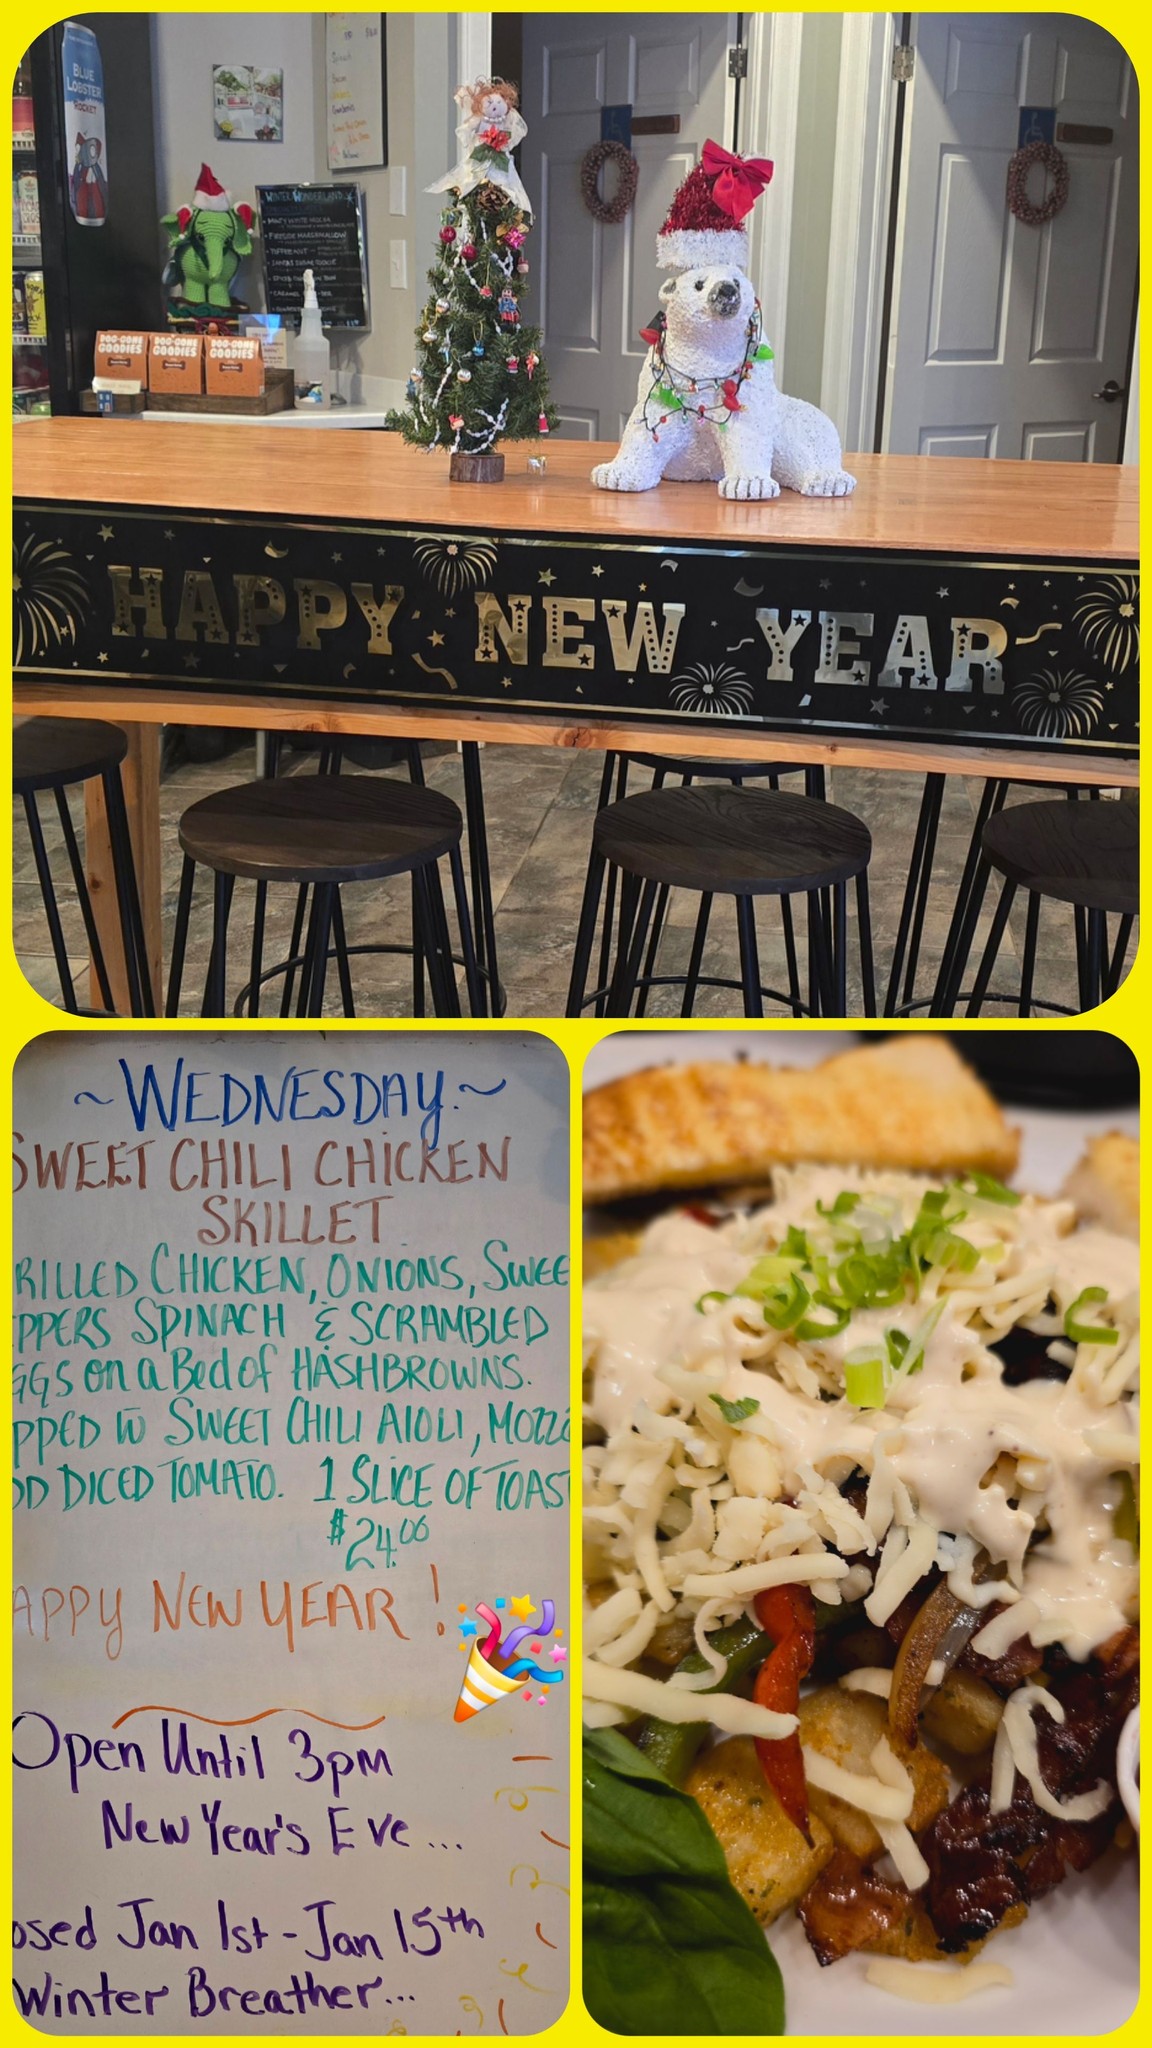 BLUE
LOBSTER
WINTER WONDERLAND
FIRESIDE MARSHMALLOW
TOFFEE NUT
DOG-GONE
GOODIES
DOG-GONE
GOODIES
DOG-GONE
GOODIES
HAPPY NEW YEAR
~WEDNESDAY~
SWEET CHILI CHICKEN
SKILLET
RILLED CHICKEN, ONIONS, SWEE
PPERS SPINACH & SCRAMBLED
GGS on a Bed of HASHBROWNS.
PPED W SWEET CHILI AIOLI, MOZZ
DD DICED TOMATO. 1 SLICE OF TOAST
$24.00
APPY NEW YEAR!
Open Until 3pm
New Year's Eve...
osed Jan 1st - Jan 15th
Winter Breather...